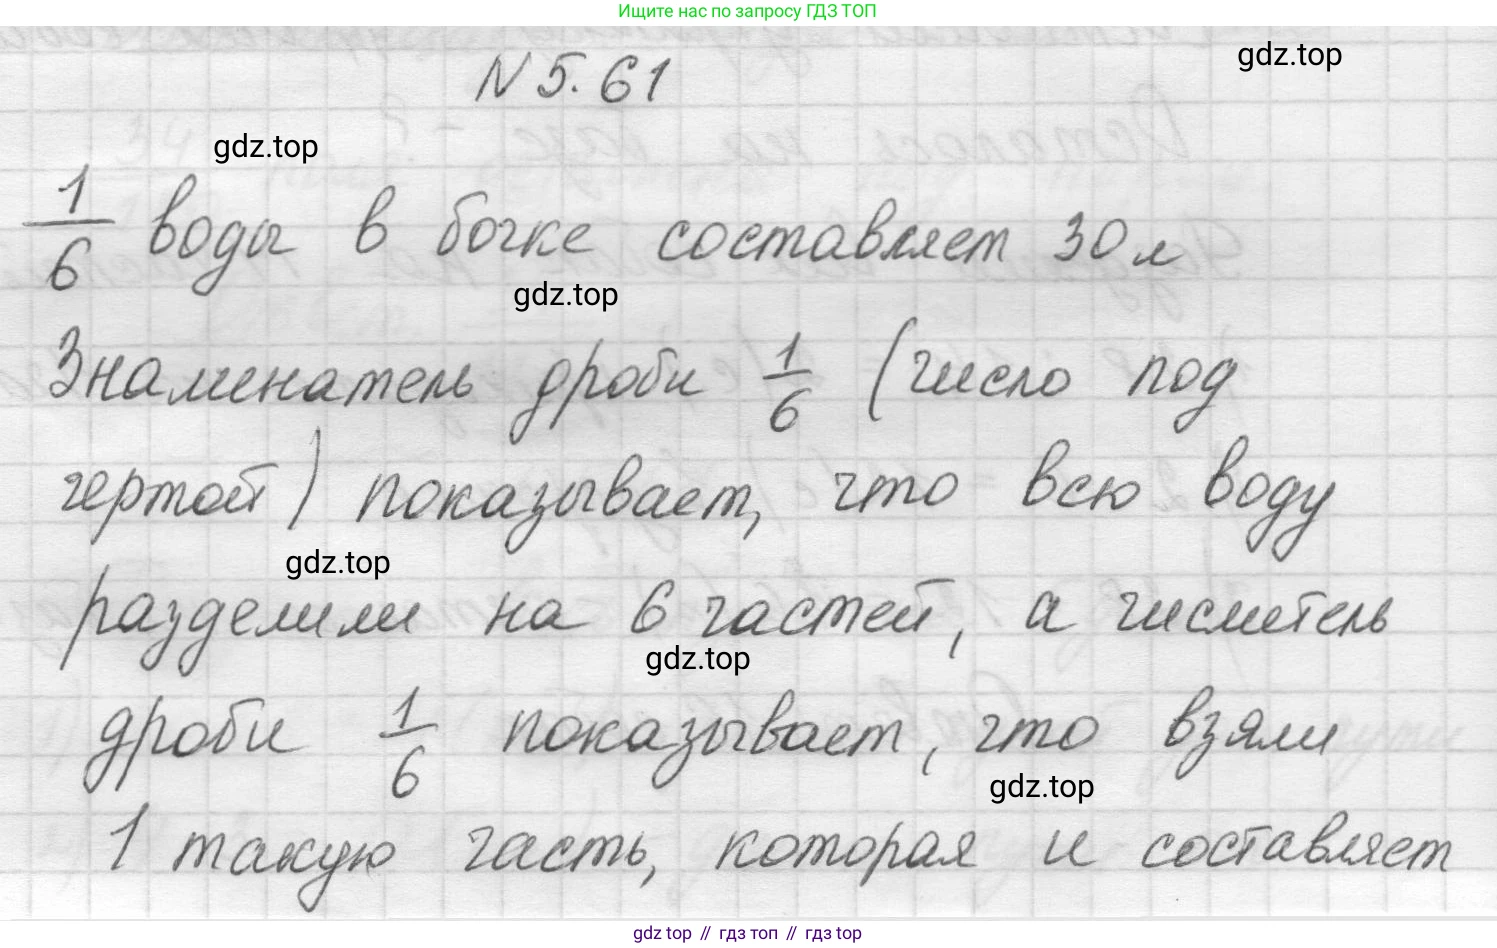 Ищите нас по запросу ГДЗ ТОП
gdz.top
N 5.61
gdz.top
1/6 воды в бочке составляет 30 л
gdz.top
Знаменатель дроби 1/6 (число под
чертой) показывает, что всю воду
gdz.top
разделили на 6 частей, а числитель
gdz.top
дроби 1/6 показывает, что взяли
gdz.top
1 такую часть, которая и составляет
gdz top // гдз топ // гдз top